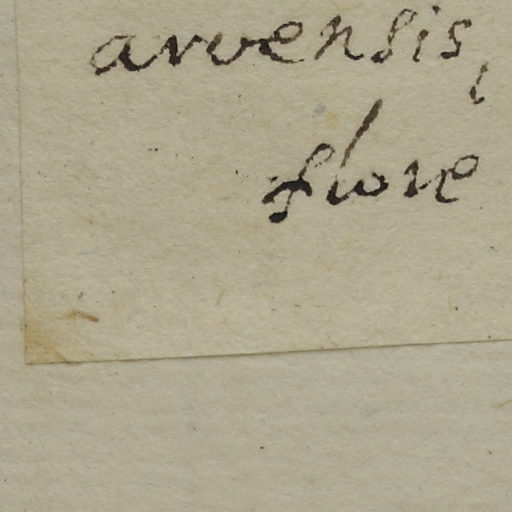 arvensis,
flore